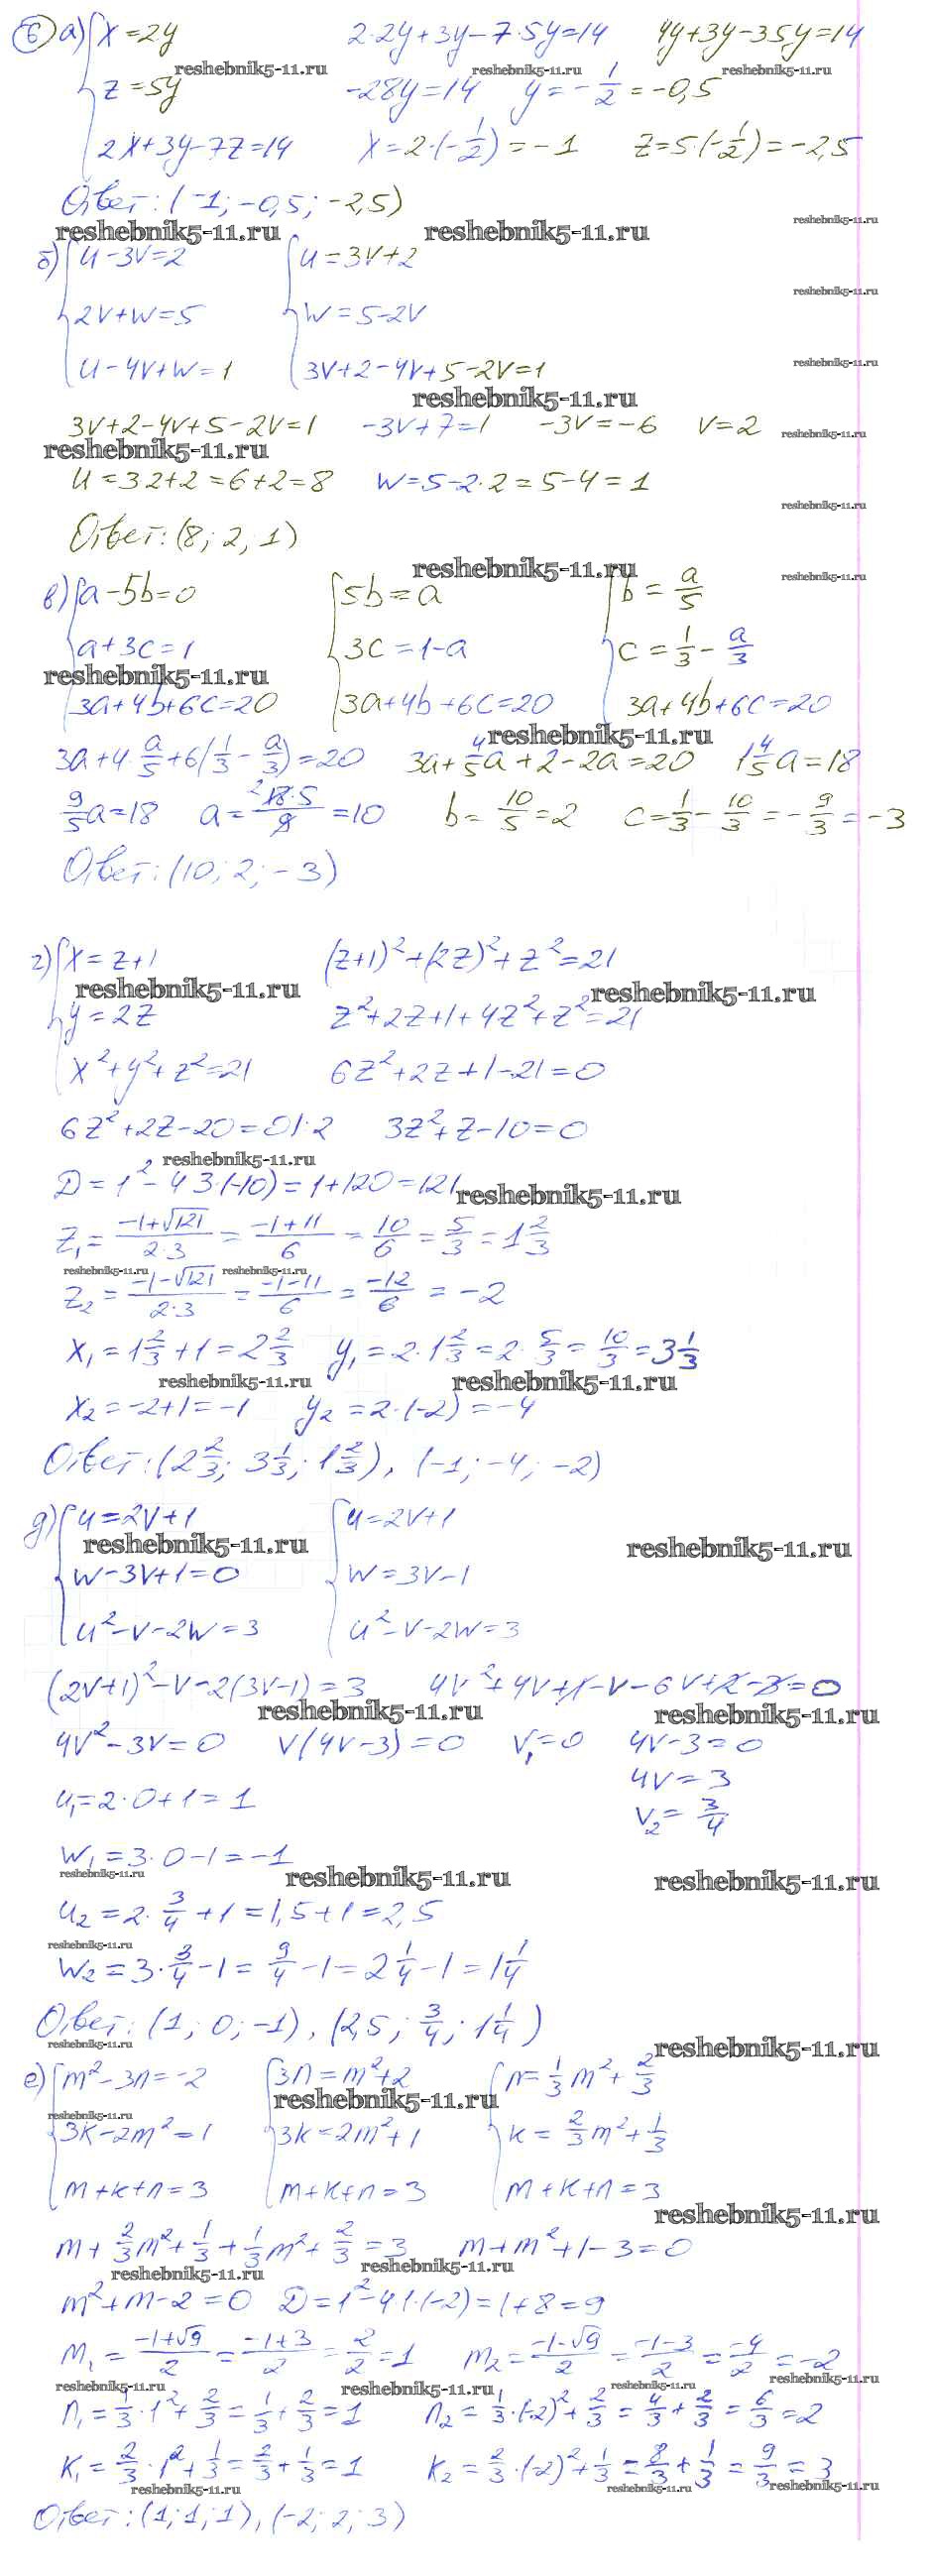 6 а) { x=2y   2·2y+3y-7·5y=14   4y+3y-35y=14
reshebnik5-11.ru reshebnik5-11.ru reshebnik5-11.ru
z=5y   -28y=14   y=-1/2=-0,5
2x+3y-7z=14   x=2·(-1/2)=-1   z=5·(-1/2)=-2,5
Ответ: (-1; -0,5; -2,5)
reshebnik5-11.ru reshebnik5-11.ru reshebnik5-11.ru
б) { u-3v=2   { u=3v+2
reshebnik5-11.ru
2v+w=5   w=5-2v
u-4v+w=1   3v+2-4v+5-2v=1
reshebnik5-11.ru
reshebnik5-11.ru
3v+2-4v+5-2v=1   -3v+7=1   -3v=-6   v=2
reshebnik5-11.ru reshebnik5-11.ru
u=3·2+2=6+2=8   w=5-2·2=5-4=1
reshebnik5-11.ru
Ответ: (8; 2; 1)
reshebnik5-11.ru reshebnik5-11.ru
в) { a-5b=0   { 5b=a   { b=a/5
a+3c=1   3c=1-a   c=1/3-a/3
reshebnik5-11.ru
3a+4b+6c=20   3a+4b+6c=20   3a+4b+6c=20
reshebnik5-11.ru
3a+4·a/5+6(1/3-a/3)=20   3a+4/5a+2-2a=20   1 4/5 a=18
9/5a=18   a=18·5/9=10   b=10/5=2   c=1/3-10/3=-9/3=-3
Ответ: (10; 2; -3)
г) { x=z+1   (z+1)²+(2z)²+z²=21
reshebnik5-11.ru reshebnik5-11.ru
y=2z   z²+2z+1+4z²+z²=21
x²+y²+z²=21   6z²+2z+1-21=0
6z²+2z-20=0|·2   3z²+z-10=0
reshebnik5-11.ru
D=1²-4·3·(-10)=1+120=121
reshebnik5-11.ru
z₁=(-1+√121)/(2·3)=(-1+11)/6=10/6=5/3=1 2/3
reshebnik5-11.ru reshebnik5-11.ru
z₂=(-1-√121)/(2·3)=(-1-11)/6=-12/6=-2
x₁=1 2/3+1=2 2/3   y₁=2·1 2/3=2·5/3=10/3=3 1/3
reshebnik5-11.ru reshebnik5-11.ru
x₂=-2+1=-1   y₂=2·(-2)=-4
Ответ: (2 2/3; 3 1/3; 1 2/3), (-1; -4; -2)
д) { u=2v+1   { u=2v+1
reshebnik5-11.ru reshebnik5-11.ru
w-3v+1=0   w=3v-1
u²-v-2w=3   u²-v-2w=3
(2v+1)²-v-2(3v-1)=3   4v²+4v+1-v-6v+2-3=0
reshebnik5-11.ru reshebnik5-11.ru
4v²-3v=0   v(4v-3)=0   v₁=0   4v-3=0
4v=3
u₁=2·0+1=1   v₂=3/4
w₁=3·0-1=-1
reshebnik5-11.ru reshebnik5-11.ru reshebnik5-11.ru
u₂=2·3/4+1=1,5+1=2,5
reshebnik5-11.ru
w₂=3·3/4-1=9/4-1=2 1/4-1=1 1/4
Ответ: (1; 0; -1), (2,5; 3/4; 1 1/4)
reshebnik5-11.ru reshebnik5-11.ru
е) { m²-3n=-2   { 3n=m²+2   { n=1/3m²+2/3
reshebnik5-11.ru reshebnik5-11.ru
3k-2m²=1   3k=2m²+1   k=2/3m²+1/3
m+k+n=3   m+k+n=3   m+k+n=3
reshebnik5-11.ru
m+2/3m²+1/3+1/3m²+2/3=3   m+m²+1-3=0
reshebnik5-11.ru reshebnik5-11.ru
m²+m-2=0   D=1²-4·1·(-2)=1+8=9
m₁=(-1+√9)/2=(-1+3)/2=2/2=1   m₂=(-1-√9)/2=(-1-3)/2=-4/2=-2
reshebnik5-11.ru reshebnik5-11.ru reshebnik5-11.ru reshebnik5-11.ru
n₁=1/3·1²+2/3=1/3+2/3=1   n₂=1/3·(-2)²+2/3=4/3+2/3=6/3=2
k₁=2/3·1²+1/3=2/3+1/3=1   k₂=2/3·(-2)²+1/3=8/3+1/3=9/3=3
reshebnik5-11.ru reshebnik5-11.ru reshebnik5-11.ru
Ответ: (1; 1; 1), (-2; 2; 3)